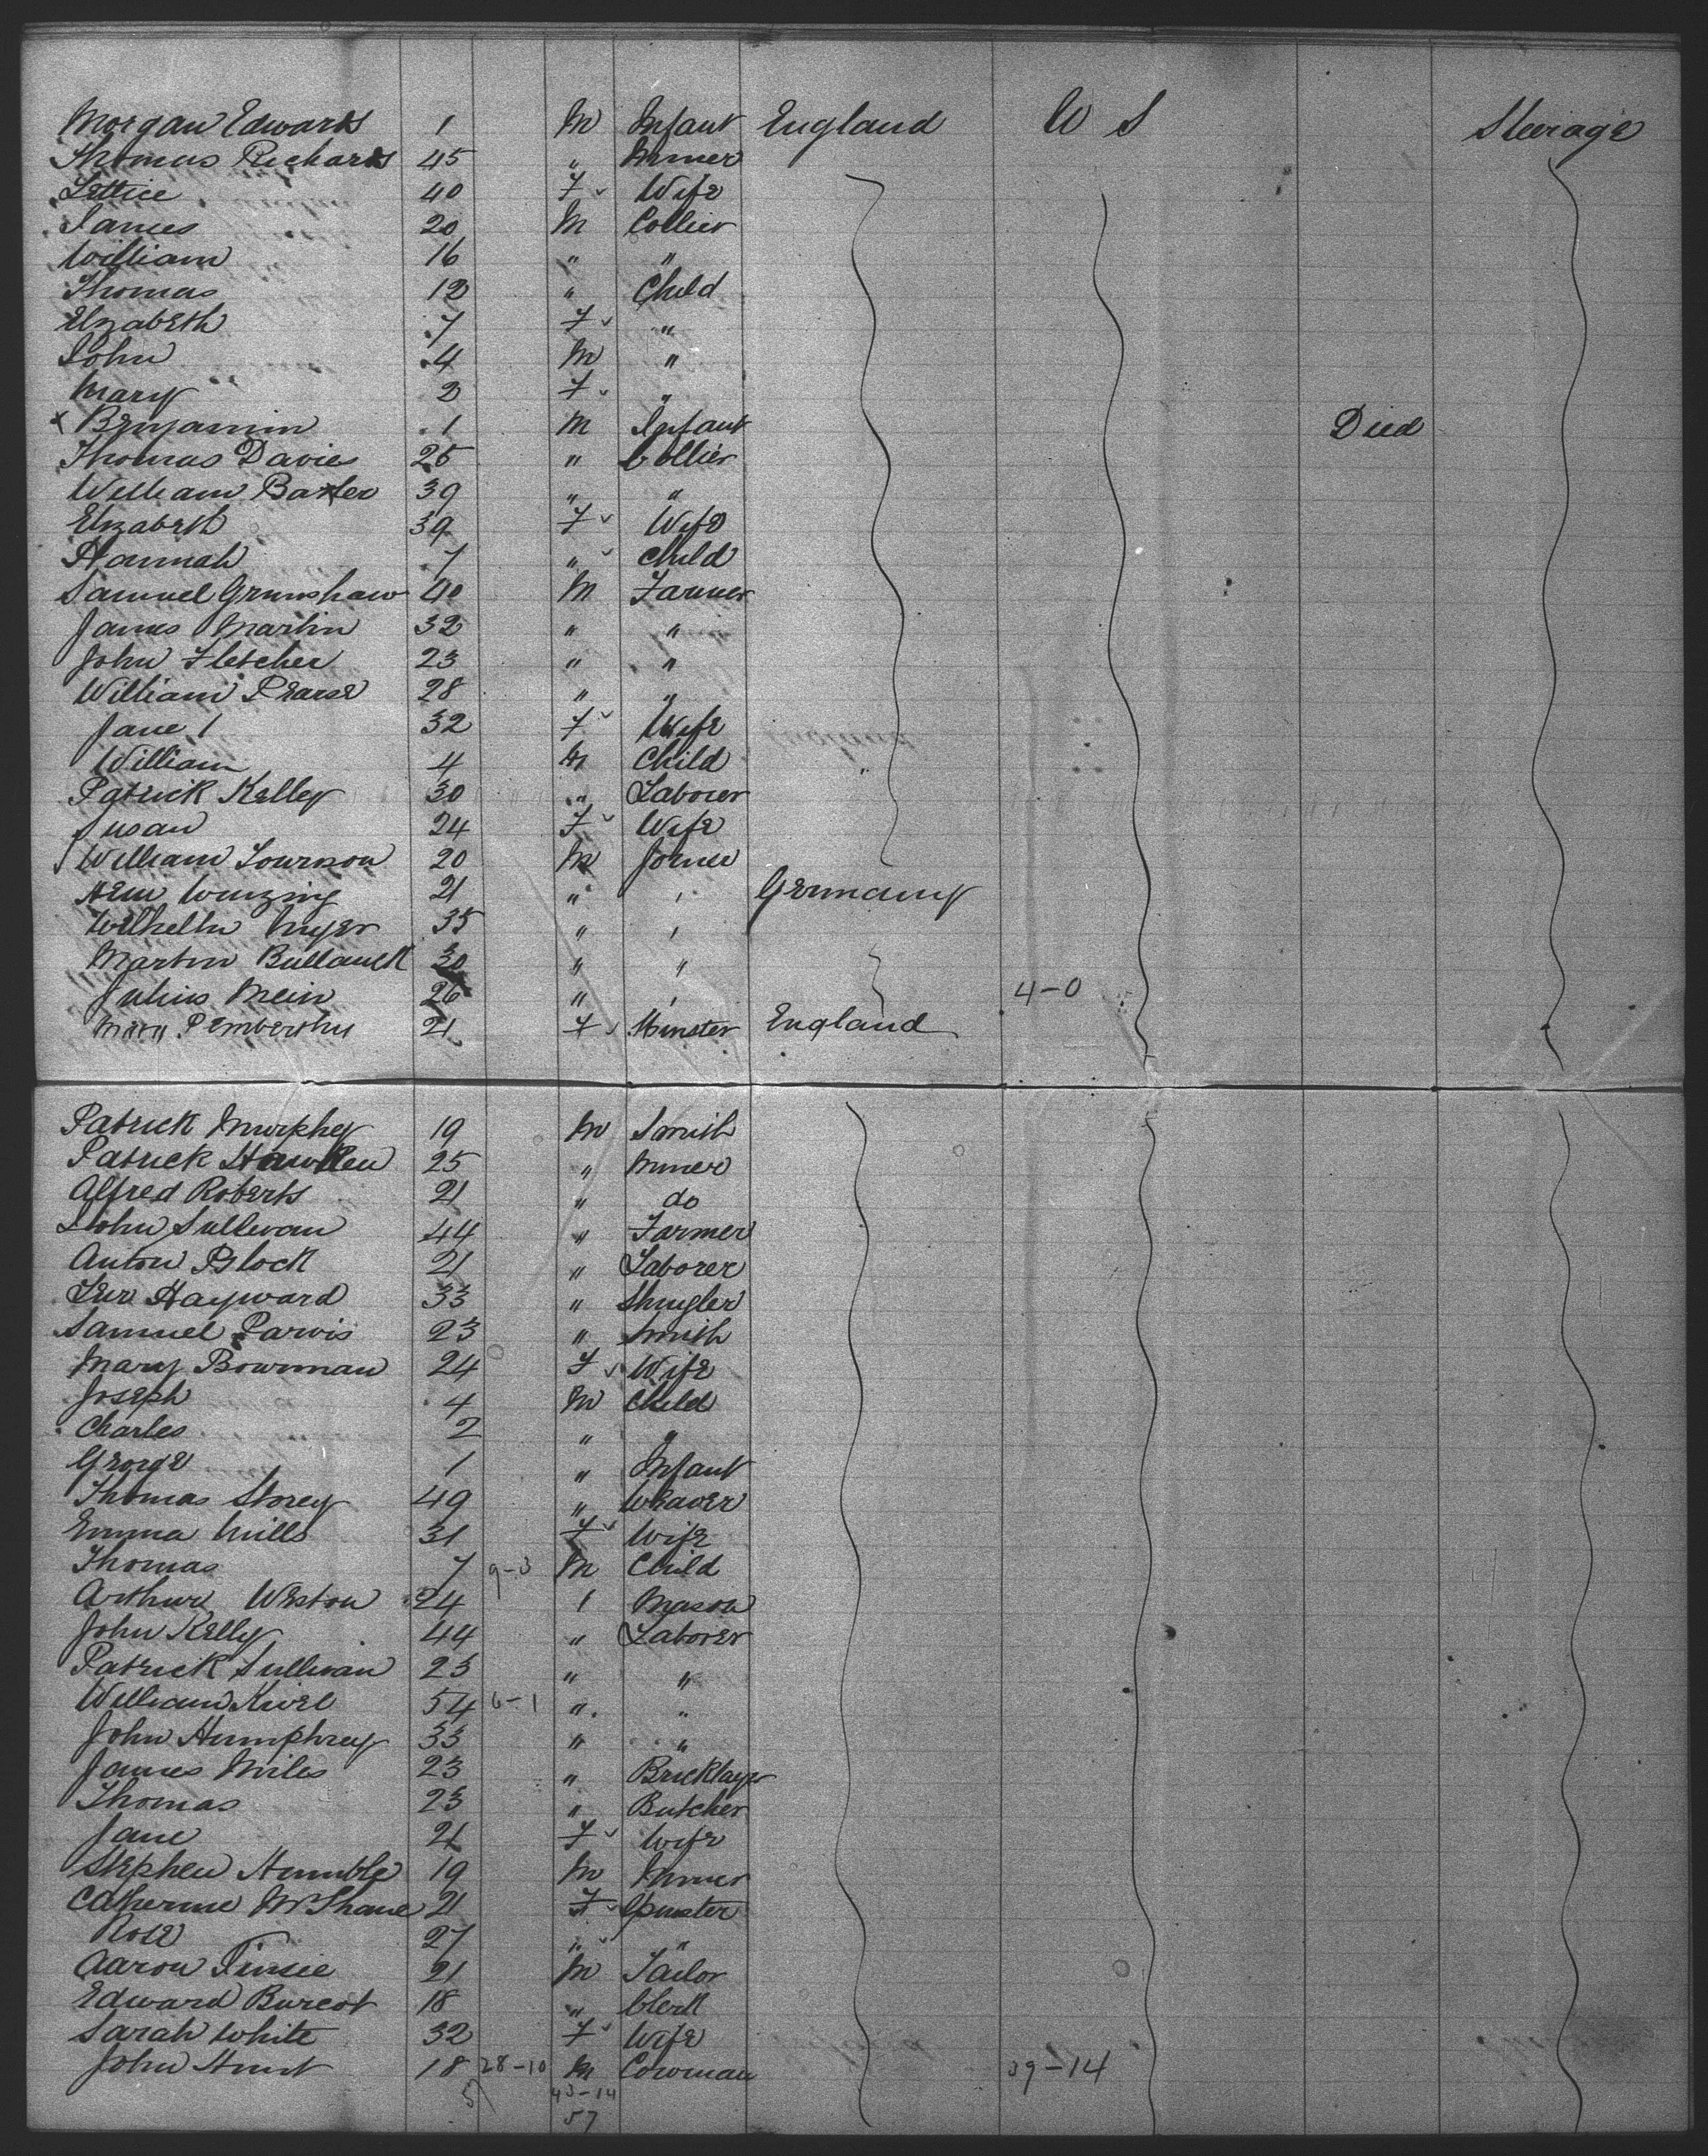 Morgan Edwards 1 M Infant England U S Steerage
Thomas Richards 45 " Miner
Lettice 40 F Wife
James 20 M Collier
William 16 " "
Thomas 12 " Child
Elizabeth 7 F "
John 4 M "
Mary 2 F "
x Benjamin 1 M Infant Died
Thomas Davies 25 " Collier
William Baxter 39 " "
Elizabeth 39 F Wife
Hannah 7 " Child
Samuel Grimshaw 40 M Farmer
James Martin 32 " "
John Fletcher 23 " "
William Pearse 28 " "
Jane 32 F Wife
William 4 M Child
Patrick Kelley 30 " Laborer
Susan 24 F Wife
William 20 M Joiner
21 " " Germany
Wilhelm 35 " "
Martin 30 " "
Julius Mein 26 " " 4-0
Mary 21 F England
Patrick Murphey 19 M Smith
Patrick 25 " Miner
Alfred Roberts 21 " do
John Sullivan 44 " Farmer
Anton Block 21 " Laborer
Hayward 33 " Shingler
Samuel Parvis 23 " Smith
Mary Bowman 24 F Wife
Joseph 4 M Child
Charles 2 " "
George 1 " Infant
Thomas Storey 49 " Weaver
Emma Mills 31 F Wife
Thomas 7 9-3 M Child
Arthur Weston 24 " Mason
John Kelly 44 " Laborer
Patrick Sullivan 23 " "
William 54 6-1 " "
John Humphrey 33 " "
James Miles 23 " Bricklayer
Thomas 23 " Butcher
Jane 21 F Wife
Stephen Humble 19 M Miner
Catherine McShane 21 F Spinster
Rose 27 " "
Aaron 21 M Tailor
Edward Burcot 18 " Clerk
Sarah White 32 F Wife
John Hunt 18 28-10 M Cowman 39-14
57 43-14
57